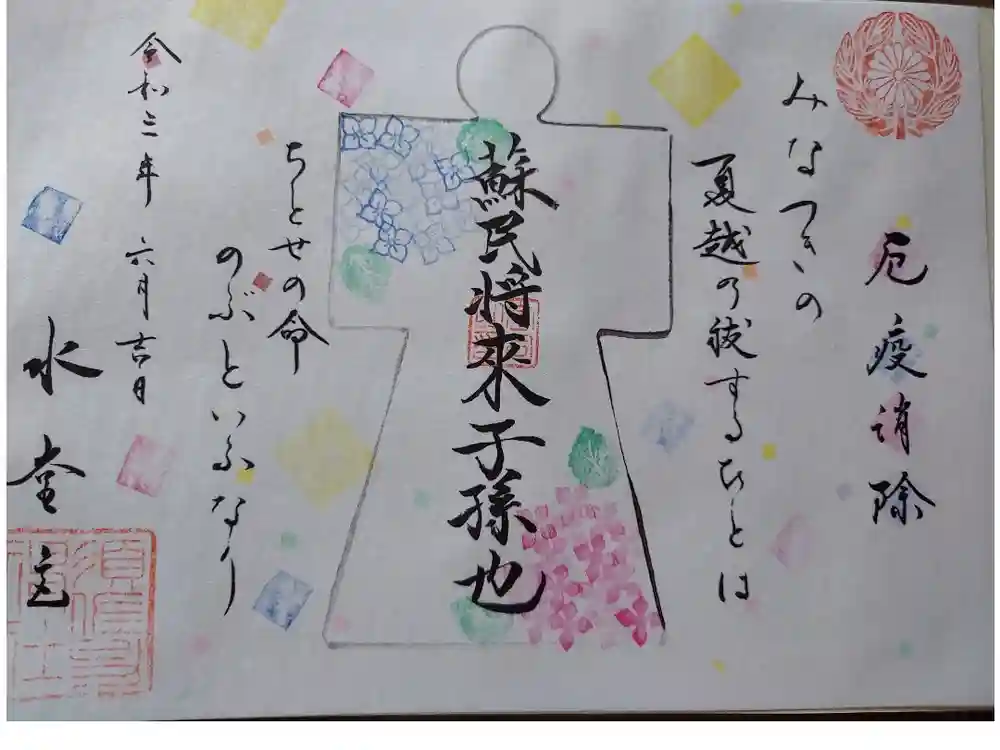 厄疫消除
みなつきの
夏越の祓するひとは
蘇民将來子孫也
ちとせの命
のぶといふなり
令和三年 六月吉日
水堂